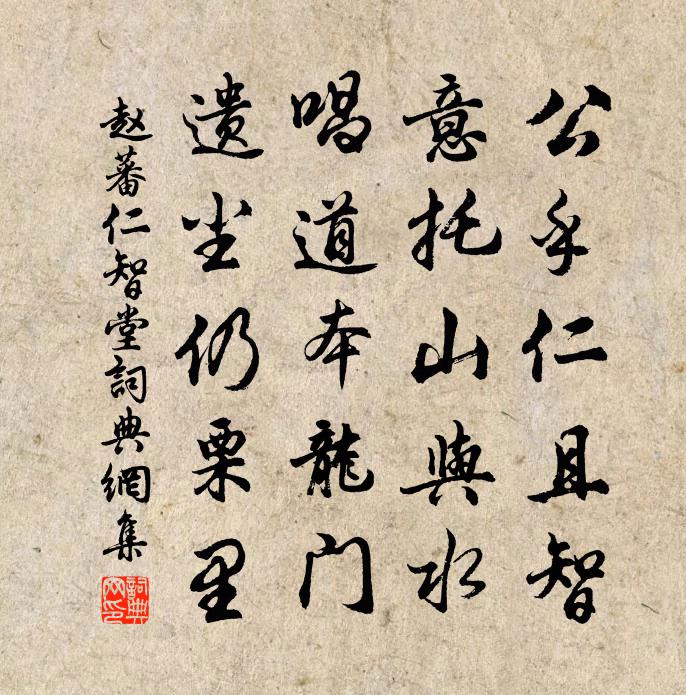 公乎仁且智
意托山與水
唱道本龍门
遗尘仍栗里
赵蕃仁智堂詞典網集
詞典
网印